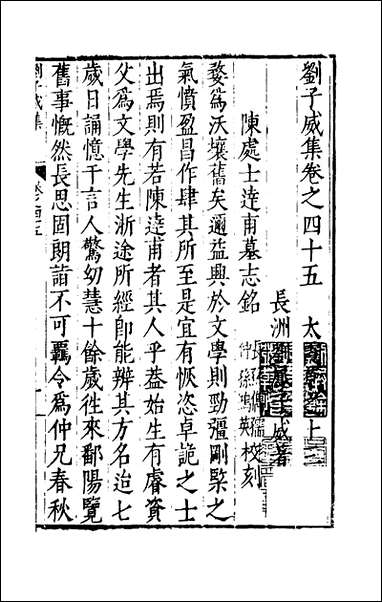 劉子威集卷之四十五　太　上
長洲劉鳳子威著
陳處士達甫墓志銘　校刻
婺爲沃壤舊矣邇益興於文學則勁彊剛㮚之
氣憤盈昌作肆其所至是宜有恢恣卓詭之士
出焉則有若陳達甫者其人乎葢始生有睿資
父爲文學先生浙途所經卽能辨其方名迨七
歲日誦憶千言人驚幼慧十餘歲徃來鄱陽覽
舊事慨然長思固朗詣不可羈令爲仲兄春秋
劉子威集